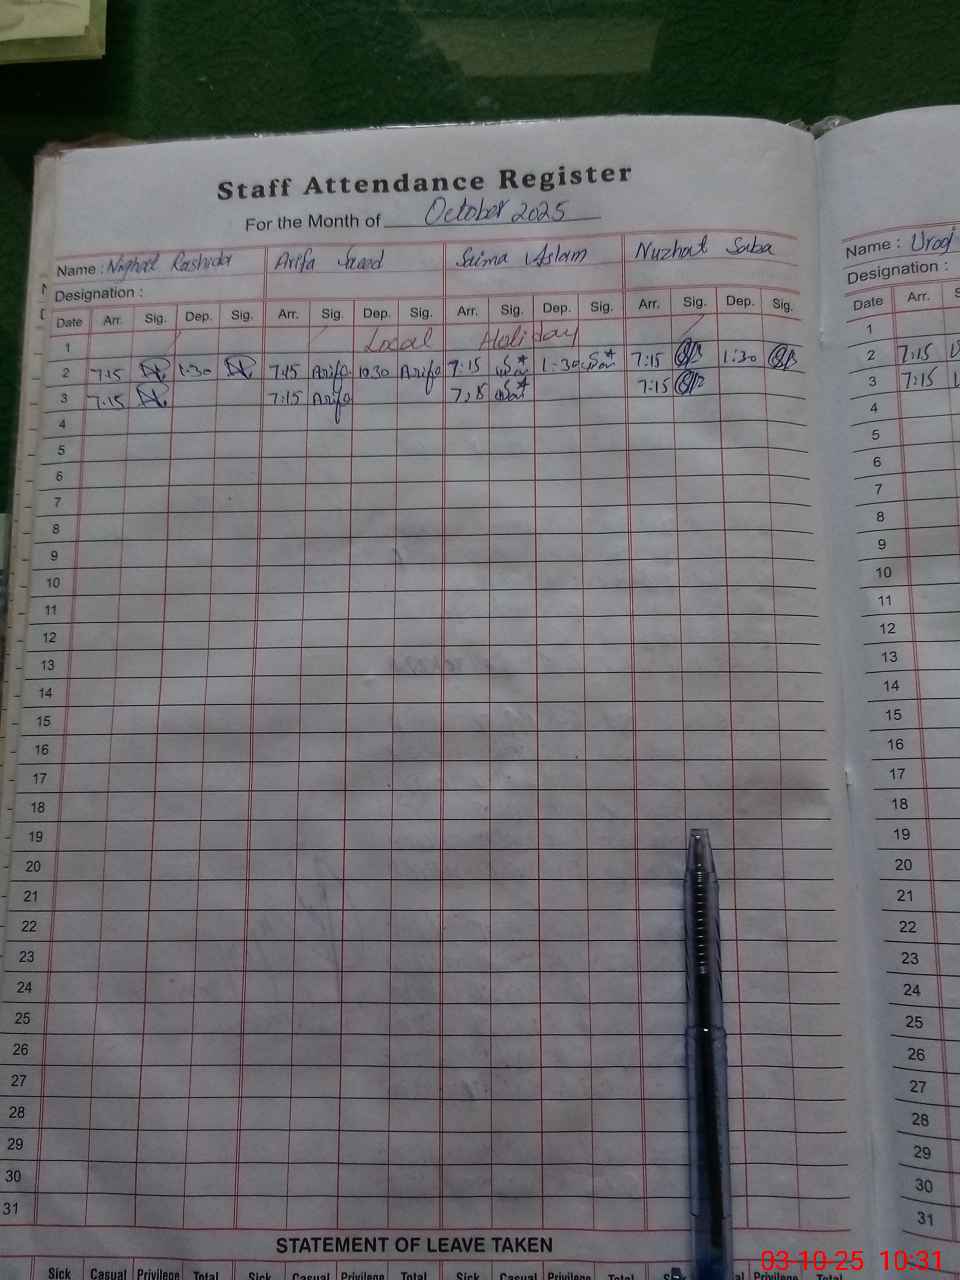 Staff Attendance Register
For the Month of October 2025
Name : Nighat Rashida Arifa Saeed Saima Aslam Nuzhat Saba
Designation :
Date Arr. Sig. Dep. Sig. Arr. Sig. Dep. Sig. Arr. Sig. Dep. Sig. Arr. Sig. Dep. Sig.
1 Local Holiday
2 7:15 1:30 7:15 Arifa Arifa 7:15 1:30 7:15 1:30
3 7:15 7:15 Arifa 7:15
4
5
6
7
8
9
10
11
12
13
14
15
16
17
18
19
20
21
22
23
24
25
26
27
28
29
30
31
STATEMENT OF LEAVE TAKEN
Sick Casual Privilege Total Sick Casual Privilege Total Sick Casual Privilege Total Casual Privilege Total
Name : Urooj
Designation :
Date Arr.
1
2 7:15
3 7:15
4
5
6
7
8
9
10
11
12
13
14
15
16
17
18
19
20
21
22
23
24
25
26
27
28
29
30
31
03-10-25 10:31